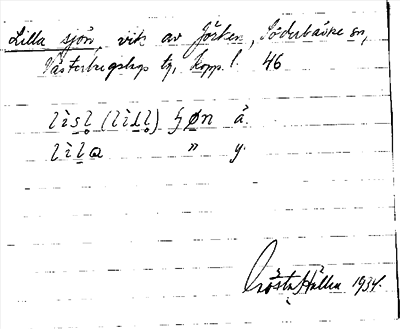 Lilla sjön, vik av Jörken, Söderbärke sn,
Västerbergslags tg, Kopp. l. 46
lìsl (lìıl) ꞩøn ä.
lìla " y.
Gösta Hallin 1934.